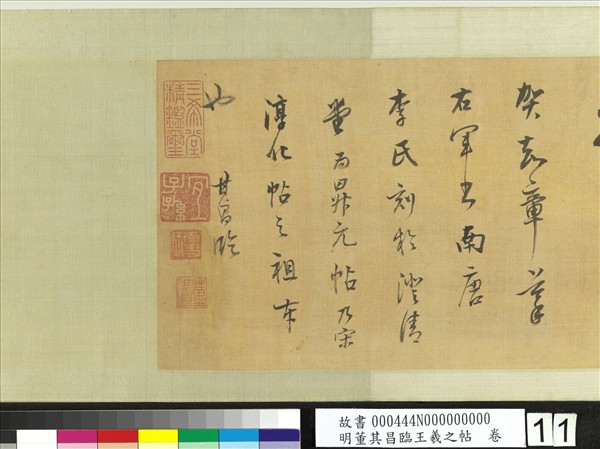 賀知章摹
右軍書南唐
李氏刻於澄清
堂為昇元帖乃宋
淳化帖之祖本
也
其昌臨
三希堂
精鑑璽
宜
子孫
故書 000444N000000000
明董其昌臨王羲之帖 卷
11